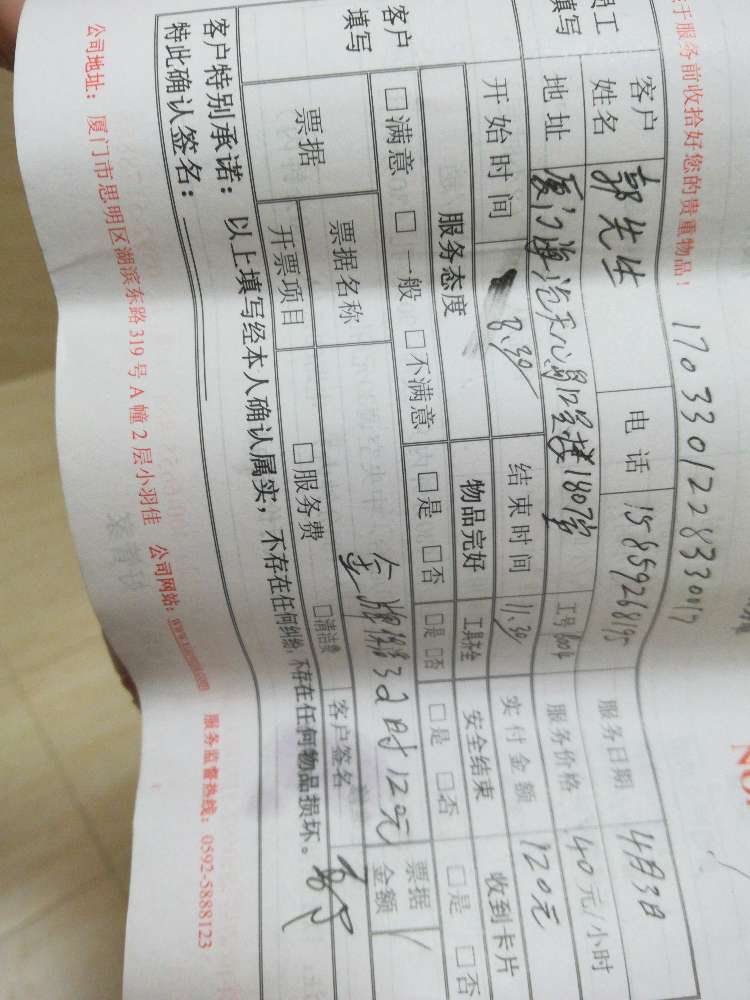 于服务前收拾好您的贵重物品！
1703301228330017
NO.
员工
填写
客户
姓名
郭先生
电话
15859268195
服务日期
4月3日
地址
工号
服务价格
40元/小时
开始时间
8:30
结束时间
11:30
实付金额
120元
客户
填写
服务态度
物品完好
工具齐全
安全结束
收到卡片
□满意 □一般 □不满意
□是 □否
□是 □否
□是 □否
□是 □否
票据
票据名称
票据
金额
开票项目
□服务费
□清洁费
客户签名
客户特别承诺： 以上填写经本人确认属实，不存在任何纠纷，不存在任何物品损坏。
特此确认签名：
公司地址： 厦门市思明区湖滨东路319号A幢2层小羽佳 公司网站： 服务监督热线：0592-5888123